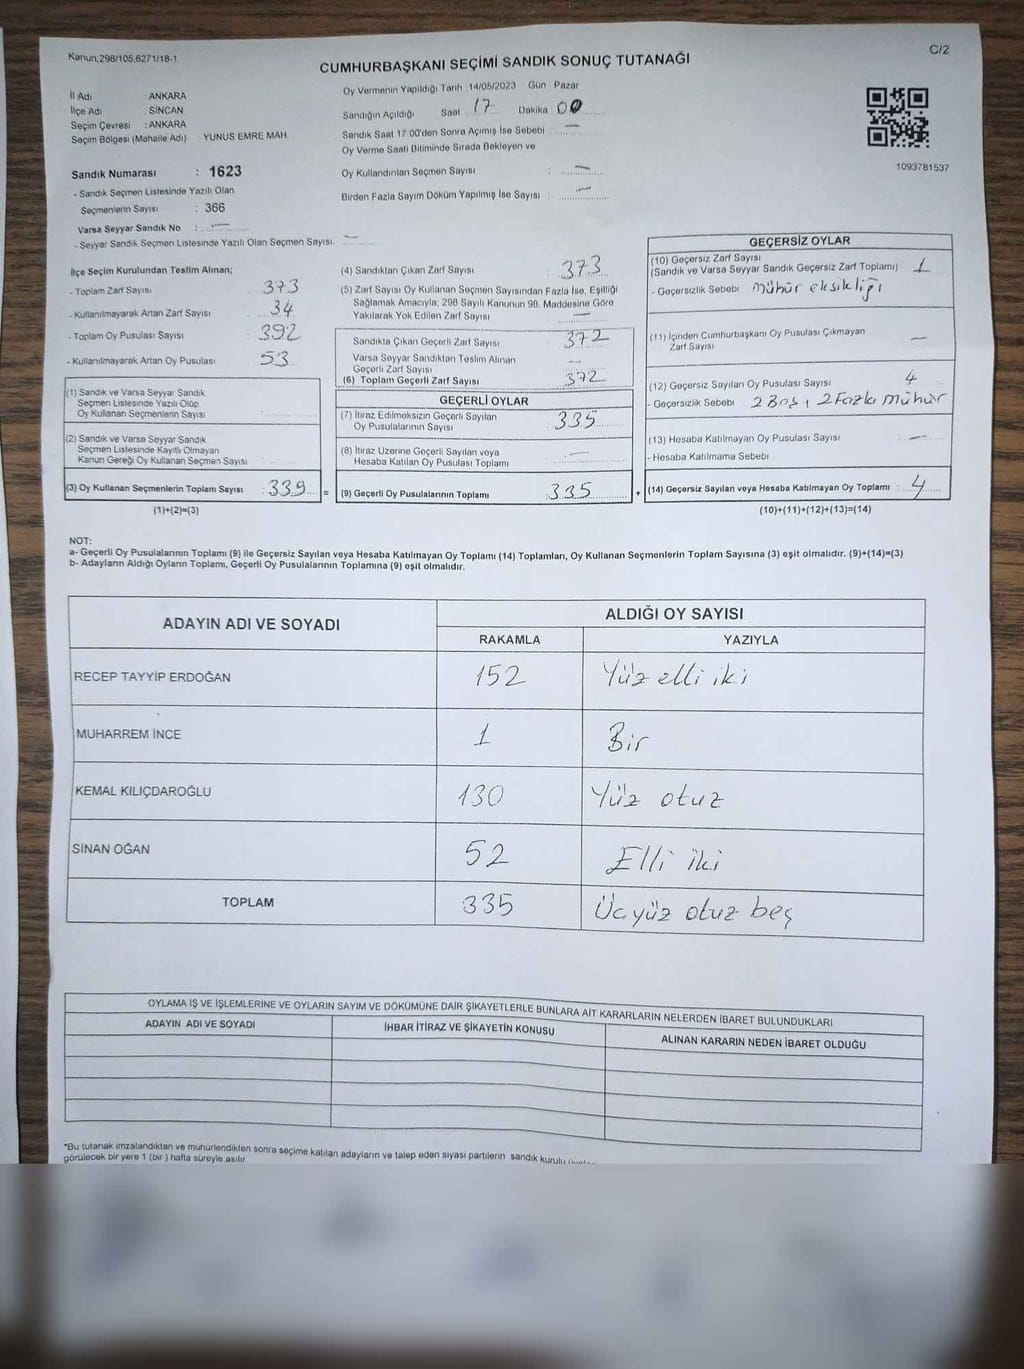 Kanun;298/105,6271/18-1
C/2
CUMHURBAŞKANI SEÇİMİ SANDIK SONUÇ TUTANAĞI
İl Adı : ANKARA
İlçe Adı : SİNCAN
Seçim Çevresi : ANKARA
Seçim Bölgesi (Mahalle Adı) YUNUS EMRE MAH.
Sandık Numarası : 1623
- Sandık Seçmen Listesinde Yazılı Olan
Seçmenlerin Sayısı : 366
Varsa Seyyar Sandık No : —
- Seyyar Sandık Seçmen Listesinde Yazılı Olan Seçmen Sayısı. —
Oy Vermenin Yapıldığı Tarih 14/05/2023 Gün Pazar
Sandığın Açıldığı Saat 17 Dakika 00
Sandık Saat 17:00'den Sonra Açımış İse Sebebi —
Oy Verme Saati Bitiminde Sırada Bekleyen ve
Oy Kullandırılan Seçmen Sayısı : —
Birden Fazla Sayım Döküm Yapılmış İse Sayısı : —
1093781537
İlçe Seçim Kurulundan Teslim Alınan;
- Toplam Zarf Sayısı 373
- Kullanılmayarak Artan Zarf Sayısı 34
- Toplam Oy Pusulası Sayısı 392
- Kullanılmayarak Artan Oy Pusulası 53
(1) Sandık ve Varsa Seyyar Sandık
Seçmen Listesinde Yazılı Olup
Oy Kullanan Seçmenlerin Sayısı
(2) Sandık ve Varsa Seyyar Sandık
Seçmen Listesinde Kayıtlı Olmayan
Kanun Gereği Oy Kullanan Seçmen Sayısı
(3) Oy Kullanan Seçmenlerin Toplam Sayısı : 339 =
(1)+(2)=(3)
(4) Sandıktan Çıkan Zarf Sayısı 373
(5) Zarf Sayısı Oy Kullanan Seçmen Sayısından Fazla İse, Eşitliği
Sağlamak Amacıyla; 298 Sayılı Kanunun 98. Maddesine Göre
Yakılarak Yok Edilen Zarf Sayısı —
Sandıkta Çıkan Geçerli Zarf Sayısı 372
Varsa Seyyar Sandıktan Teslim Alınan
Geçerli Zarf Sayısı —
(6) Toplam Geçerli Zarf Sayısı 372
GEÇERLİ OYLAR
(7) İtiraz Edilmeksizin Geçerli Sayılan
Oy Pusulalarının Sayısı 335
(8) İtiraz Üzerine Geçerli Sayılan veya
Hesaba Katılan Oy Pusulası Toplamı —
(9) Geçerli Oy Pusulalarının Toplamı 335 +
GEÇERSİZ OYLAR
(10) Geçersiz Zarf Sayısı
(Sandık ve Varsa Seyyar Sandık Geçersiz Zarf Toplamı) 1
- Geçersizlik Sebebi Mühür eksikliği
(11) İçinden Cumhurbaşkanı Oy Pusulası Çıkmayan
Zarf Sayısı —
(12) Geçersiz Sayılan Oy Pusulası Sayısı 4
- Geçersizlik Sebebi 2 Boş, 2 Fazla mühür
(13) Hesaba Katılmayan Oy Pusulası Sayısı —
- Hesaba Katılmama Sebebi
(14) Geçersiz Sayılan veya Hesaba Katılmayan Oy Toplamı : 4
(10)+(11)+(12)+(13)=(14)
NOT:
a- Geçerli Oy Pusulalarının Toplamı (9) ile Geçersiz Sayılan veya Hesaba Katılmayan Oy Toplamı (14) Toplamları, Oy Kullanan Seçmenlerin Toplam Sayısına (3) eşit olmalıdır. (9)+(14)=(3)
b- Adayların Aldığı Oyların Toplamı, Geçerli Oy Pusulalarının Toplamına (9) eşit olmalıdır.
ADAYIN ADI VE SOYADI
ALDIĞI OY SAYISI
RAKAMLA YAZIYLA
RECEP TAYYİP ERDOĞAN 152 Yüz elli iki
MUHARREM İNCE 1 Bir
KEMAL KILIÇDAROĞLU 130 Yüz otuz
SİNAN OĞAN 52 Elli iki
TOPLAM 335 Üçyüz otuz beş
OYLAMA İŞ VE İŞLEMLERİNE VE OYLARIN SAYIM VE DÖKÜMÜNE DAİR ŞİKAYETLERLE BUNLARA AİT KARARLARIN NELERDEN İBARET BULUNDUKLARI
ADAYIN ADI VE SOYADI İHBAR İTİRAZ VE ŞİKAYETİN KONUSU ALINAN KARARIN NEDEN İBARET OLDUĞU
*Bu tutanak imzalandıktan ve mühürlendikten sonra seçime katılan adayların ve talep eden siyasi partilerin sandık kurulu
görülecek bir yere 1 (bir ) hafta süreyle asılır